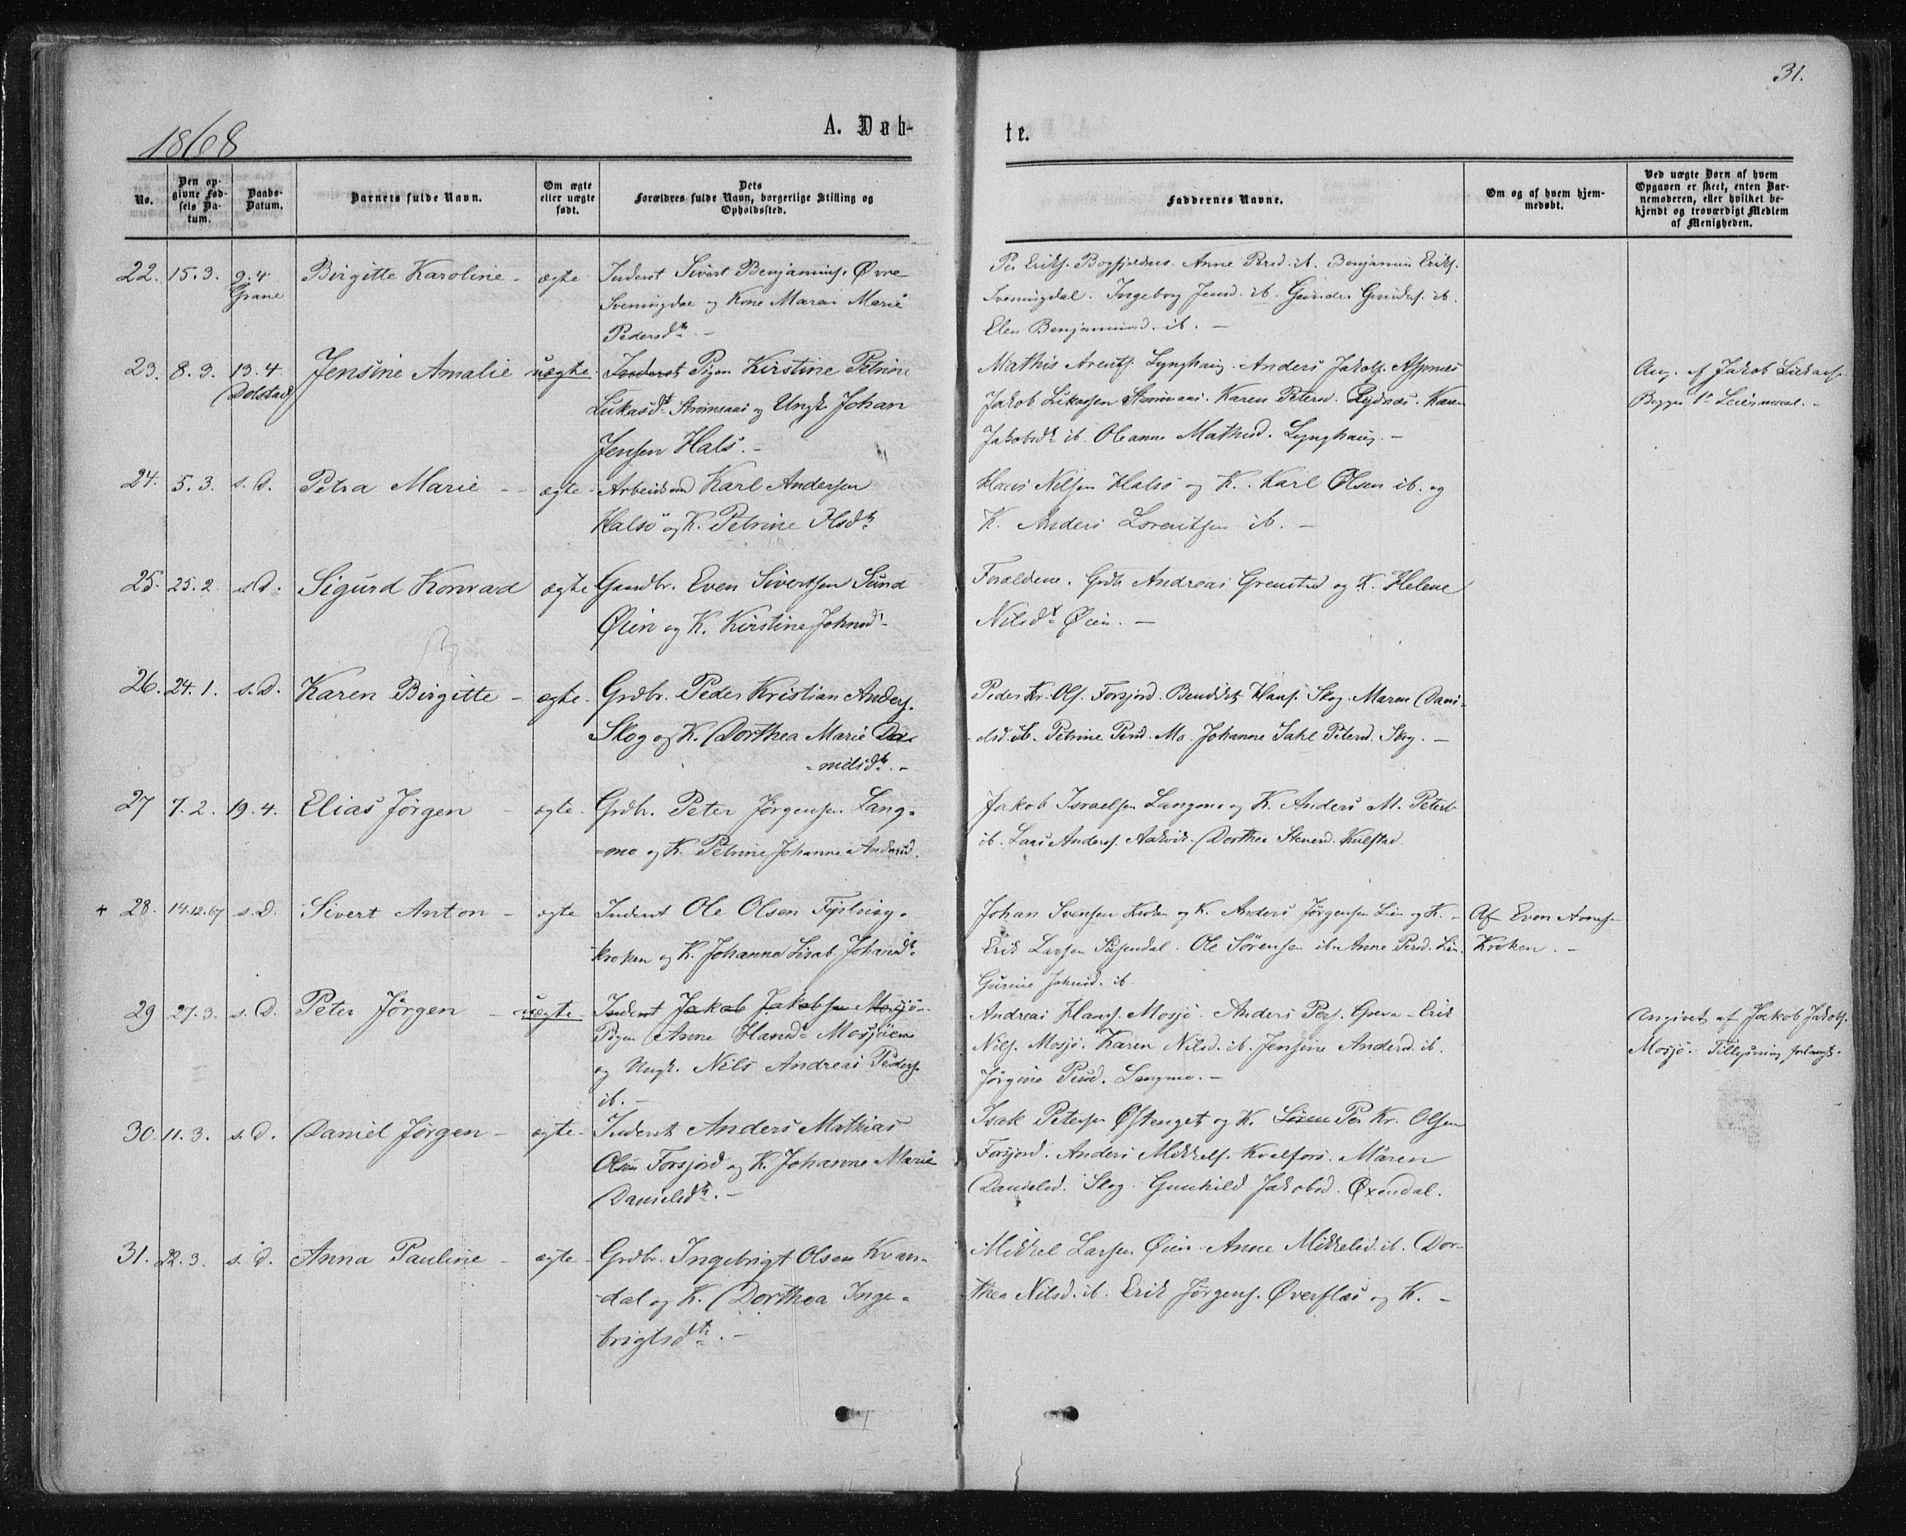 31.
1868
A. Døb-
te.
No.
Den op-
givne Fød-
sels Da-
tum.
Daabs-
Datum.
Barnets fulde Navn.
Om ægte
eller uægte
født.
Dets
Forældres fulde Navn, borgerlige Stilling og
Opholdssted.
Faddernes Navne.
Om og af hvem hjem-
medøbt.
Ved uægte Børn af hvem
Opgaven er skeet, enten Bar-
nemoderen, eller hvilket be-
kjendt og troværdigt Medlem
af Menigheden.
22. 15.3. 9.4 Birgitte Karoline - ægte. Inderst Sivert Benjamins. Øvre
Grane
Svenningdal og Kone Maren Marie
Pedersd. -
Per Eriks. Bogfjeldnes. Anne Persd. ib. Benjamin Eriks.
Svenningdal. Ingeborg Jensd. ib. ib.
Elen Benjaminsd. ib. -
23. 8.3. 13.4 Jensine Amalie uægte. Inderst Pigen Kirstine Petrine
Dolstad
Lukasd. og Ungk. Johan
Jensen Hals. -
Mathis Arents. Lynghaug. Anders Jakobs. Aspnes
Jakob Lukassen Karen Petersd. Karen
Jakobsd. ib. Oleanne Mathisd. Lynghaug. -
Ang. af Jakob Lukass.
Begges 1ste Leiermaal. -
24. 5.3. s.D. Petra Marie - ægte - Arbeidsmd Karl Andersen
Halsø og K. Petrine Olsd.
Hans Nilsen Halsø og K. Karl Olsen ib. og
K. Anders Lorentsen ib. -
25. 25.2. s.D. Sigurd Konrad ægte Gaardbr. Even Sivertsen Sund
Øien og K. Kirstine Johnsd.
Forældrene. Grdb. Andreas og K. Helene
Nilsd. Øien. -
26. 24.1. s.D. Karen Birgitte - ægte. Grdbr. Peder Kristian Anders.
Skog og K. Dorthea Marie Da-
-nielsd. -
Peder Kr. Ols. Forsjord. Bendikt Hans. Skog. Maren Dani-
elsd. ib. Petrine Persd. Mo. Johanne Petersd. Skog. -
27 7.2. 19.4. Elias Jørgen - ægte. Grdbr. Peter Jørgensen Lang-
-mo og K. Petrine Johanne Andersd.
Jakob Israelsen Langmo og K. Anders M. Peters.
ib. Lars Anders. Aakvik. Dorthea Kulstad.
+ 28. 14.12.67 s.D. Sivert Anton - ægte Inderst Ole Olsen
kroken og K. Johanna Lisab. Johansd.
Johan Svensen og K. Anders Jørgensen Lien og K. -
Erik Larsen Susendal. Ole Sørensen ib. Anne Persd. Lien.
Gurine Johnsd. ib.
Af Even Arnes.
Kroken. -
29 27.3. s.D. Peter Jørgen - uægte. Inderst Jakob Jakobsen Mosjø
Pigen Anne Hansd. Mosjøen
og Ungk. Nils Andreas Peders.
ib. -
Andreas Hans. Mosjø. Anders Pers. Erik
Nils. Mosjø. Karen Nilsd. ib. Jensine Andersd. ib.
Jørgine Persd. Langmo. -
Angivet af Jakob Jakobs.
Mosjø. Tillysning forlangt.
30. 11.3. s.D. Daniel Jørgen - ægte - Inderst Anders Mathias
Olsen Forsjord og K. Johanne Marie
Danielsd. -
Isak Petersen Østenget og K. Søren Per Kr. Olsen
Forsjord. Anders Mikkels. Kvalfors. Maren
Danielsd. Skog. Gunhild Jakobsd. Øxendal.
31. 22.3. s.D. Anna Pauline - ægte - Grdbr. Ingebrigt Olsen Kvan-
-dal og K. Dorthea Inge-
brigtsd. -
Mikkel Larsen Øien. Anne Mikkelsd. ib. Dor-
thea Nilsd. ib. Erik Jørgens. Øverflas og K. -